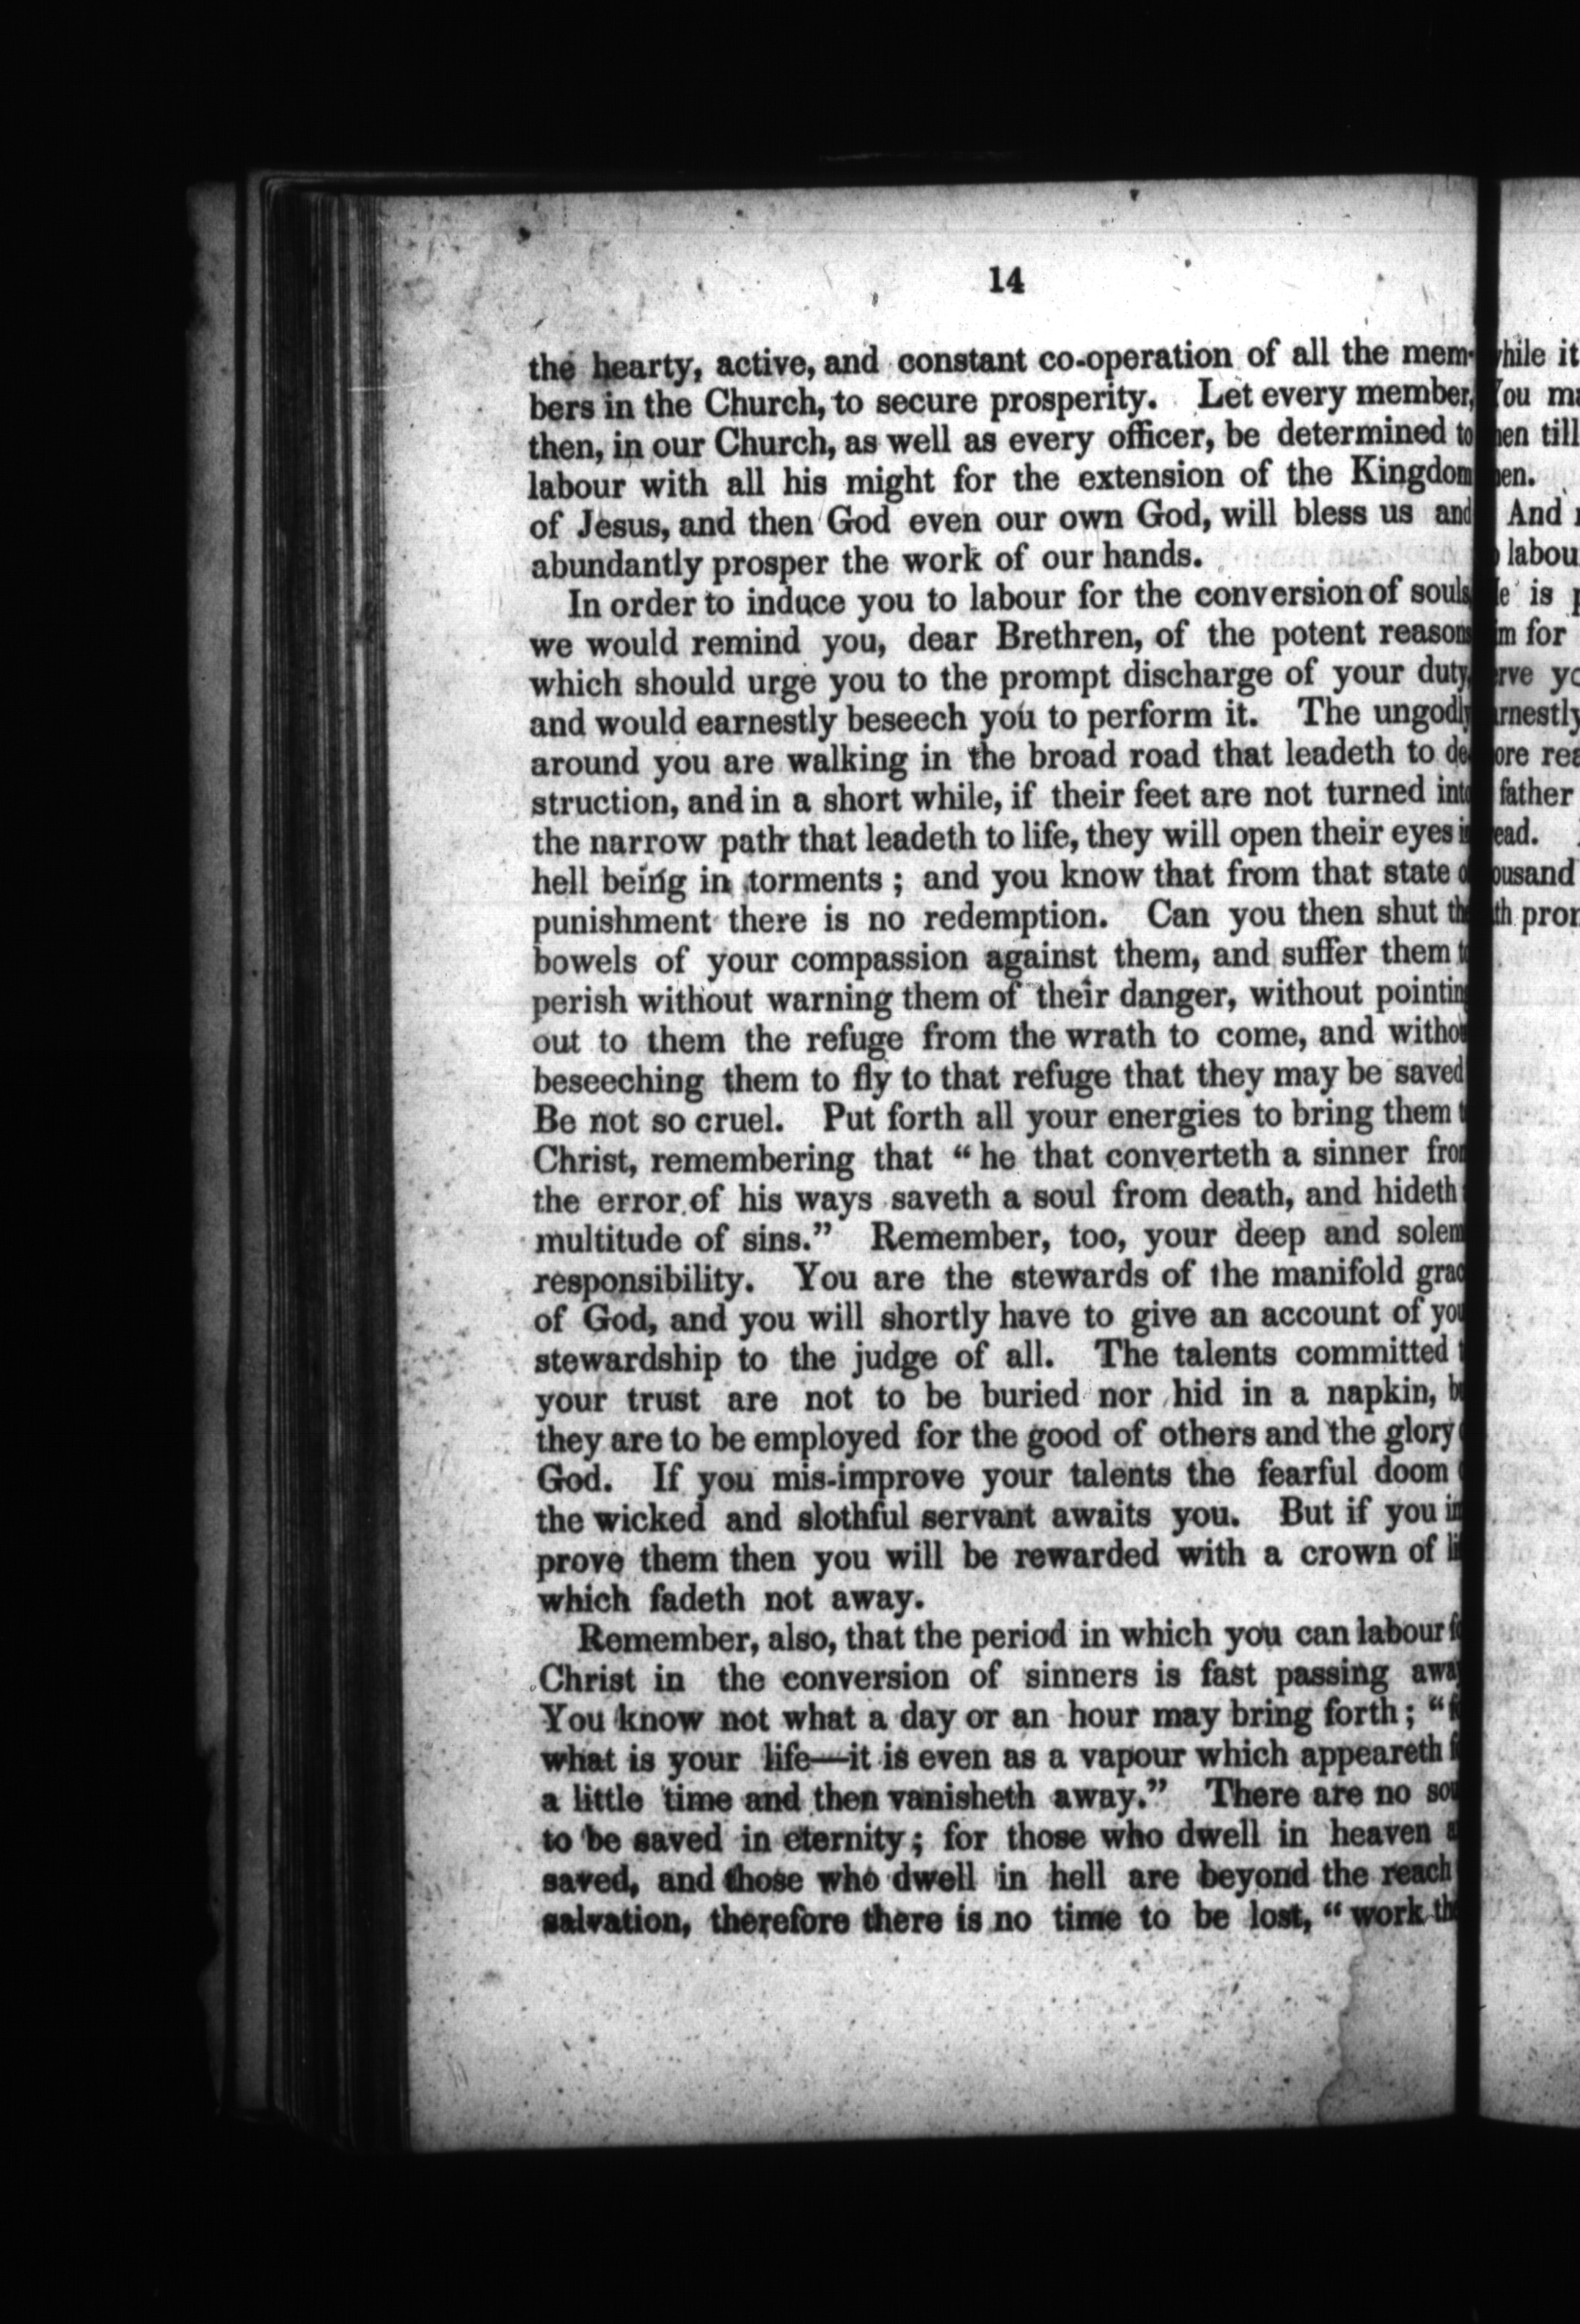 14
the hearty, active, and constant co-operation of all the mem-
bers in the Church, to secure prosperity. Let every member,
then, in our Church, as well as every officer, be determined to
labour with all his might for the extension of the Kingdom
of Jesus, and then God even our own God, will bless us and
abundantly prosper the work of our hands.
In order to induce you to labour for the conversion of souls
we would remind you, dear Brethren, of the potent reasons
which should urge you to the prompt discharge of your duty,
and would earnestly beseech you to perform it. The ungodly
around you are walking in the broad road that leadeth to de
struction, and in a short while, if their feet are not turned into
the narrow path that leadeth to life, they will open their eyes
hell being in torments ; and you know that from that state
punishment there is no redemption. Can you then shut the
bowels of your compassion against them, and suffer them
perish without warning them of their danger, without pointin
out to them the refuge from the wrath to come, and withou
beseeching them to fly to that refuge that they may be saved
Be not so cruel. Put forth all your energies to bring them
Christ, remembering that “ he that converteth a sinner from
the error of his ways saveth a soul from death, and hideth
multitude of sins.” Remember, too, your deep and solem
responsibility. You are the stewards of the manifold grac
of God, and you will shortly have to give an account of you
stewardship to the judge of all. The talents committed
your trust are not to be buried nor hid in a napkin,
they are to be employed for the good of others and the glory
God. If you mis-improve your talents the fearful doom
the wicked and slothful servant awaits you. But if you
prove them then you will be rewarded with a crown of
which fadeth not away.
Remember, also, that the period in which you can labour
Christ in the conversion of sinners is fast passing away
You know not what a day or an hour may bring forth ; “
what is your life—it is even as a vapour which appeareth
a little time and then vanisheth away.” There are no
to be saved in eternity ; for those who dwell in heaven
saved, and those who dwell in hell are beyond the reach
salvation, therefore there is no time to be lost, “ work
hile it
ou
till
And
labou
is
for
rve
rnestly
ore
father
ead.
ousand